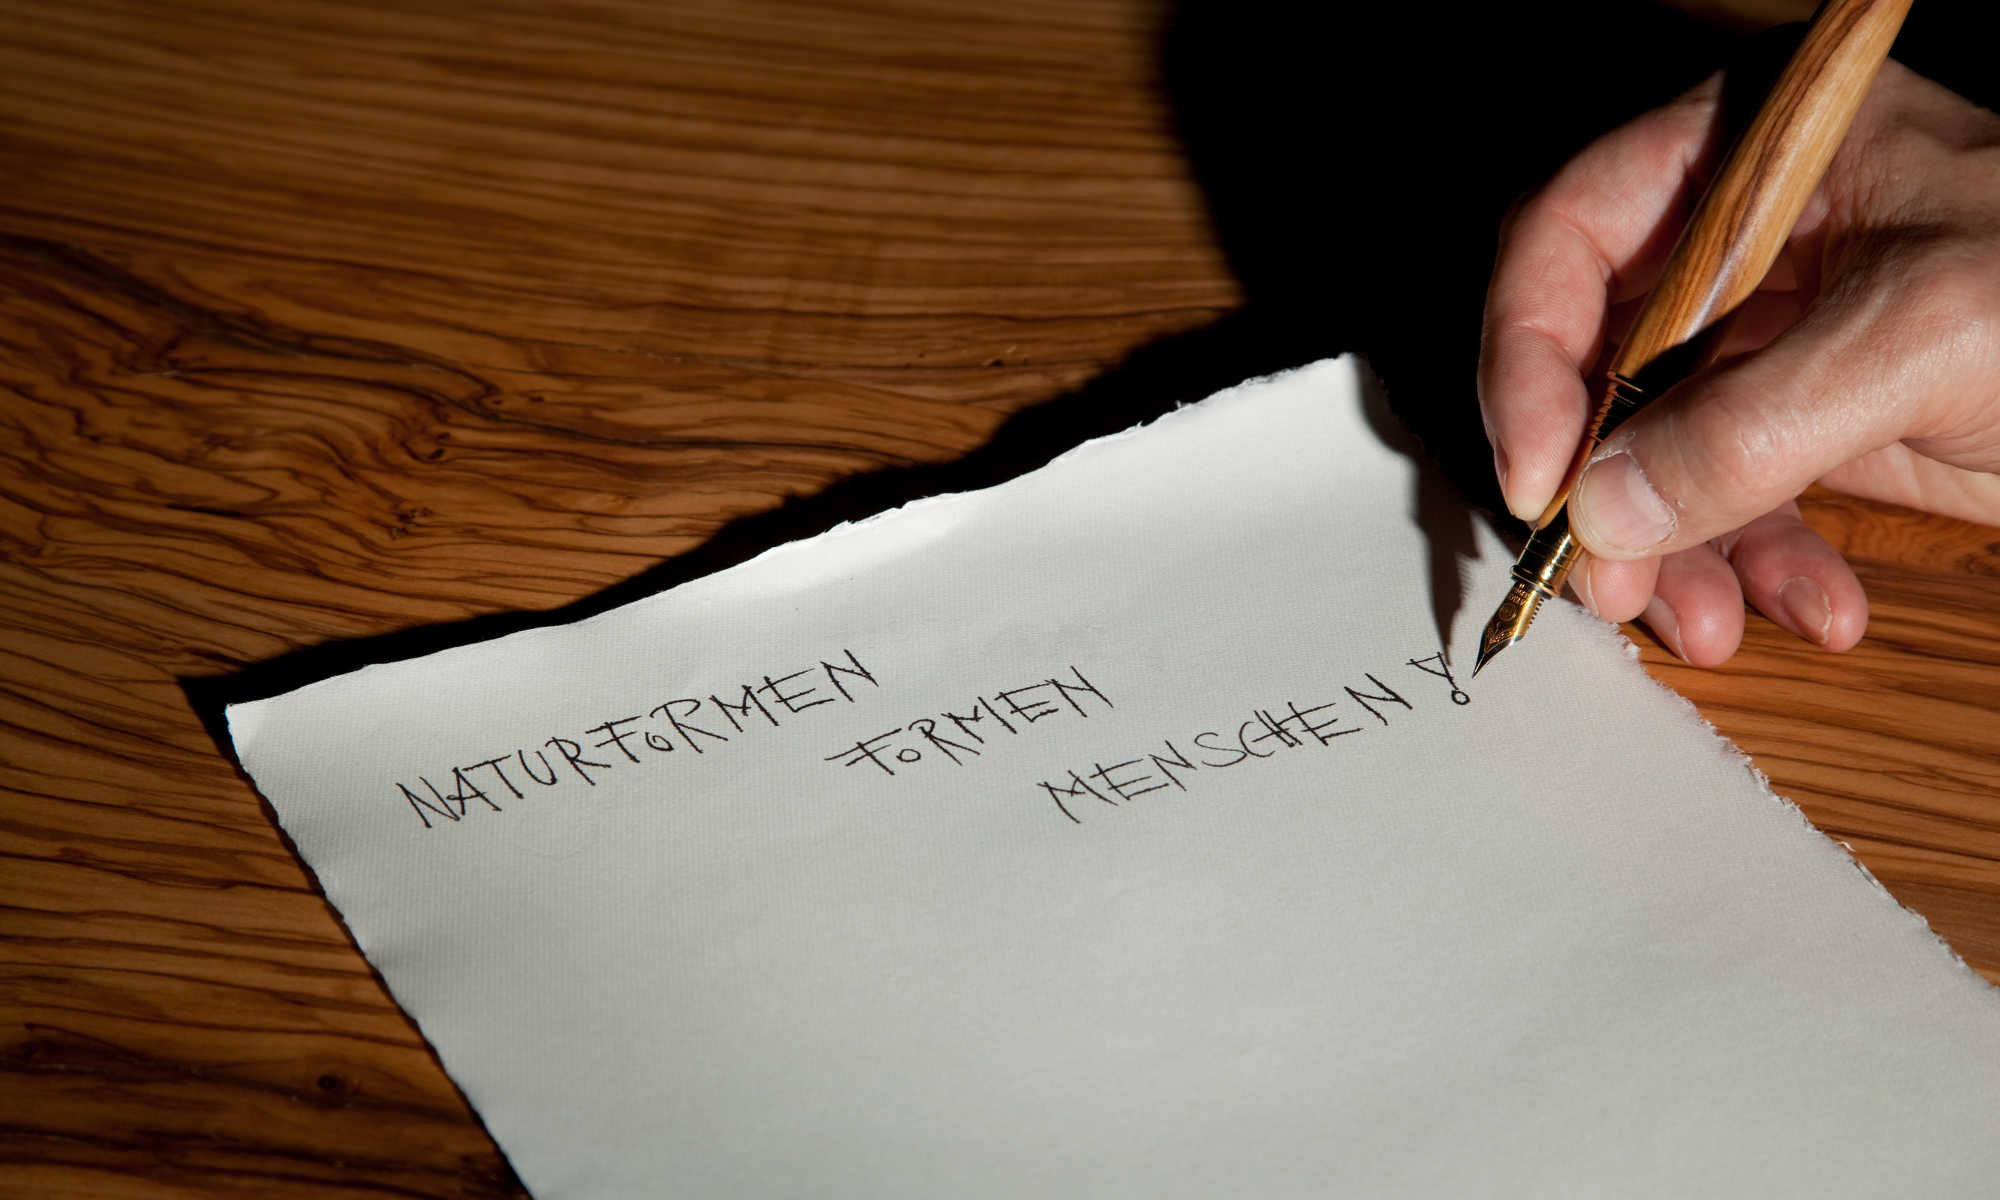 NATURFORMEN
FORMEN
MENSCHEN!